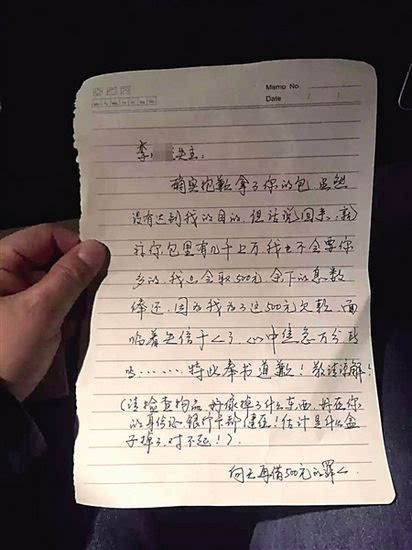 Memo No.
Date / /
李 先生：
确实抱歉拿了你的包，虽然
没有达到我的目的，但话说回来，就
算你包里有几千上万，我也不会要你
多的，我只会取500元，余下的悉数
俸还，因为我为了这500元欠款，面
临着失信于人了，心中焦急万分
呜……特此奉书道歉！敬请谅解！
（请检查物品，好像掉了什么东西，好在你
的身份证、银行卡都健在！估计是什么盒
子掉了，对不起！）。
向天再借500元的罪人